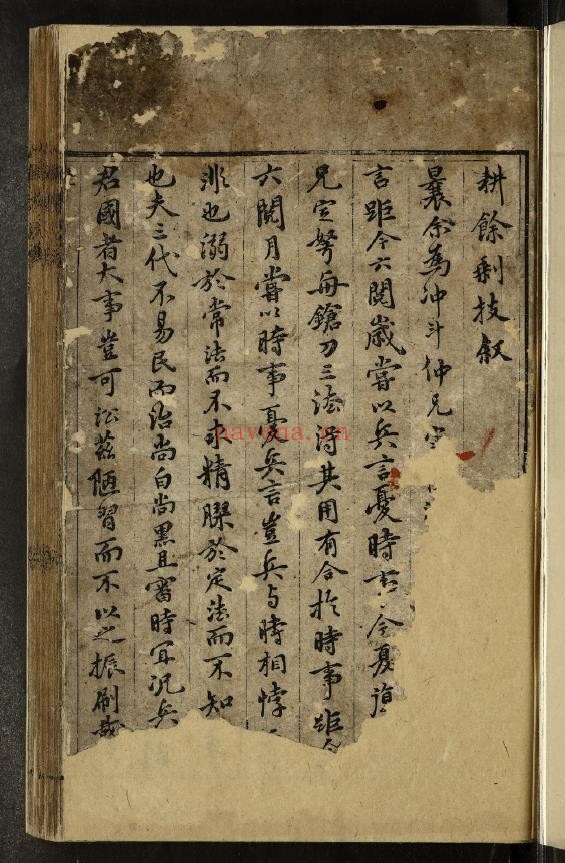 耕餘剩技叙
曩余為冲斗仲兄
言距今六閱歲嘗以兵言憂時言今夏
兄定弩毋鎗刀三法得其用有合扵時事距
六閱月嘗以時事憂兵言豈兵与時相悖
非也溺於常法而不求精膠於定法而不知
也夫三代不易民而治尚白尚黑且審時冝况兵
君國者大事豈可訟茲陋習而不以之振刷哉
nayona.cn